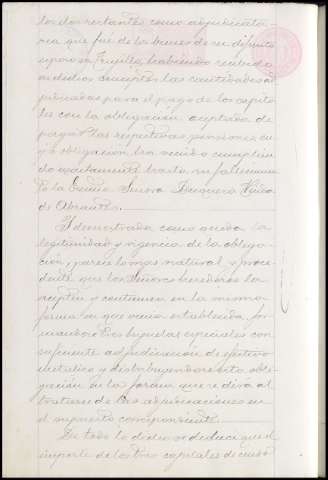 los dos restantes como adjudicata-
ria que fué de los bienes de su difunto
esposo en Trujillo, habiendo recibido
en dichos conceptos las cantidades ad-
judicadas para el pago de los capita-
les con la obligación aceptada de
pagar las respectivas pensiones cu-
ya obligación ha venido cumplien-
do exactamente hasta su fallecimien-
to la Excma. Señora Duquesa Viuda
de Abrantes.
Y demostrada como queda la
legitimidad y vigencia de la obliga-
ción, parece lo mas natural y proce-
dente que los Señores herederos la
acepten y continuen en la misma
forma en que venia establecida, for-
mandose hijuelas especiales con
suficiente adjudicación de efectivo
metalico y distribuyendose esta obli-
gación en la forma que se dirá al
tratarse de las adjudicaciones en
el supuesto correspondiente.
De todo lo dicho se deduce que el
importe de los tres capitales de censo